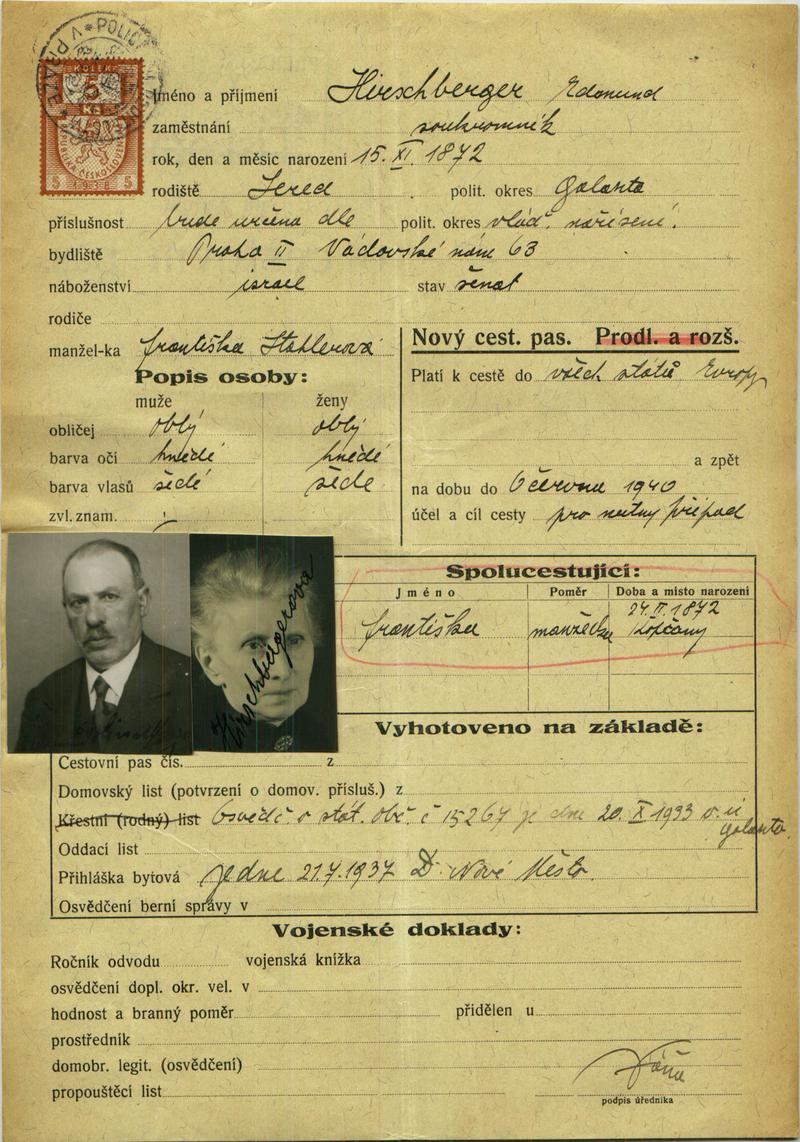 KOLEK
5
Kč
REPUBLIKA ČESKOSLOVENSKÁ
5 1938 5
Jméno a příjmení Hirschberger Edmund
zaměstnání soukromník
rok, den a měsíc narození 15. XI. 1872
rodiště Sered polit. okres Galanta
příslušnost bude určena dle polit. okres vlád. nařízení.
bydliště Praha II Václavské nám 63
náboženství israel stav ženat
rodiče
manžel-ka Františka Stahlerová
Nový cest. pas. Prodl. a rozš.
Popis osoby:
Platí k cestě do všech států Evropy
muže ženy
obličej oblý oblý
barva očí hnědé hnědé
a zpět
barva vlasů šedé šedé
na dobu do 6 června 1940
zvl. znam.
účel a cíl cesty pro nutný případ
Spolucestující:
Jméno Poměr Doba a místo narození
24. II. 1872
Františka manželka
Hirschbergerova
Vyhotoveno na základě:
Cestovní pas čís. z
Domovský list (potvrzení o domov. přísluš.) z
Křestní (rodný) list Osvědč. o stát. obč. č 15267 je dne 20. X 1933 o. ú
Galanta
Oddací list
Přihláška bytová je dne 21.7.1937 D. Nové Město.
Osvědčení berní správy v
Vojenské doklady:
Ročník odvodu vojenská knížka
osvědčení dopl. okr. vel. v
hodnost a branný poměr přidělen u
prostředník
domobr. legit. (osvědčení)
propouštěcí list
podpis úředníka